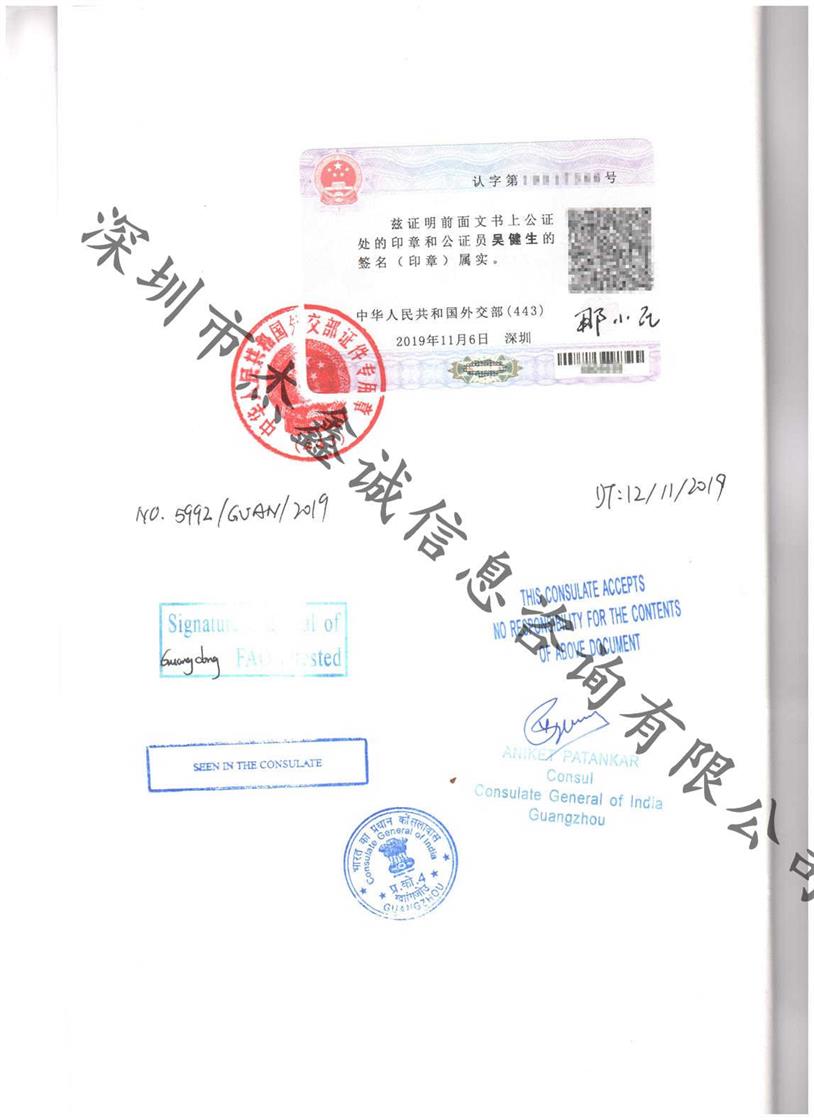 认字第 号
兹证明前面文书上公证
处的印章和公证员吴健生的
签名（印章）属实。
中华人民共和国外交部(443)
2019年11月6日 深圳
中华人民共和国外交部证件专用章
深圳市杰鑫诚信息咨询有限公司
NO. 5992/GUAN/2019
DT:12/11/2019
Signature of
Guangdong
THIS CONSULATE ACCEPTS
NO RESPONSIBILITY FOR THE CONTENTS
OF ABOVE DOCUMENT
SEEN IN THE CONSULATE
ANIKET PATANKAR
Consul
Consulate General of India
Guangzhou
भारत का प्रधान कौंसलावास
Consulate General of India
प्र.को.4
ग्वांगजोउ
GUANGZHOU